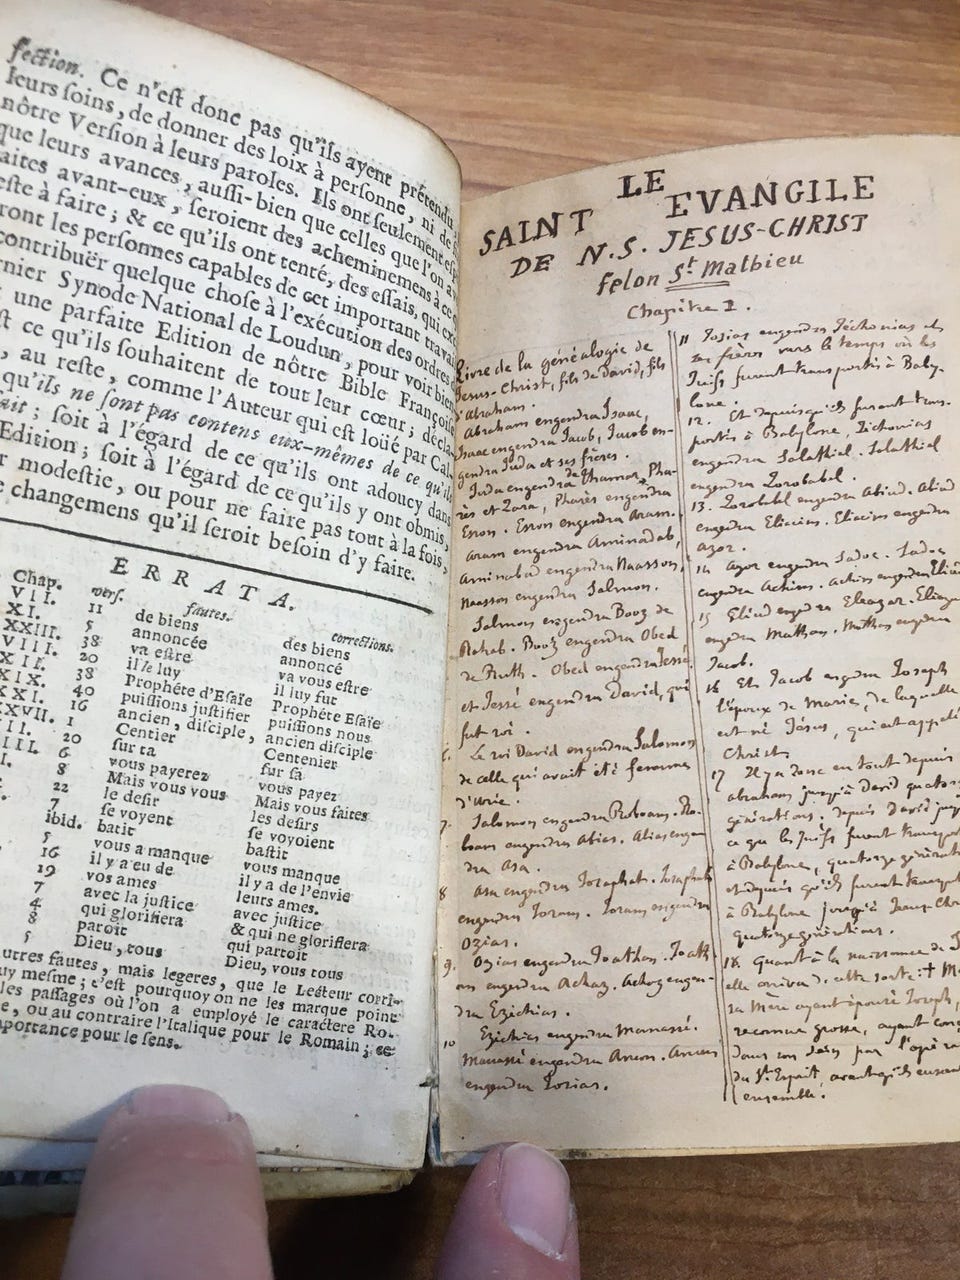 fection. Ce n'est donc pas qu'ils ayent prétendu
leurs soins, de donner des loix à personne, ni de
nôtre Version à leurs paroles. Ils ont seulement
que leurs avances, aussi-bien que celles que l'on
aites avant-eux, seroient des acheminemens à ce
este à faire; & ce qu'ils ont tenté, des essais, qui
ront les personnes capables de cet important travail
contribuër quelque chose à l'exécution des ordres
rnier Synode National de Loudun, pour voir bien
une parfaite Edition de nôtre Bible Françoise
st ce qu'ils souhaitent de tout leur cœur; décla-
, au reste, comme l'Auteur qui est loüé par Cal-
qu'ils ne sont pas contens eux-mêmes de ce qu'ils
ait; soit à l'égard de ce qu'ils ont adoucy dans
Edition; soit à l'égard de ce qu'ils y ont obmis,
r modestie, ou pour ne faire pas tout à la fois,
e changemens qu'il seroit besoin d'y faire.
ERRATA.
Chap. vers. fautes. corrections.
VII. 11 de biens des biens
XI. 5 annoncée annoncé
XXIII. 38 va estre va vous estre
VIII. 20 il le luy il luy fut
XII. 38 Prophéte d'Esaïe Prophéte Esaïe
XIX. 40 puissions justifier puissions nous
XXI. 16 ancien, disciple, ancien disciple
XXVII. 1 Centier Centenier
20 sur ta sur sa
6 vous payerez vous payez
8 Mais vous vous Mais vous faites
22 le desir les desirs
7 se voyent se voyoient
ibid. batit bastit
5 vous a manque vous manque
16 il y a eu de il y a de l'envie
19 vos ames leurs ames.
7 avec la justice avec justice
4 qui glorifiera & qui ne glorifiera
8 paroit qui partoit
5 Dieu, tous Dieu, vous tous
utres fautes, mais legeres, que le Lecteur corri-
uy mesme; c'est pourquoy on ne les marque point
les passages où l'on a employé le caractere Ro-
e, ou au contraire l'Italique pour le Romain; ce
mportance pour le sens.
LE
SAINT EVANGILE
DE N.S. JESUS-CHRIST
selon St. Mathieu
Chapitre I.
Livre de la généalogie de
Jesus-Christ, fils de David, fils
d'Abraham.
Abraham engendra Isaac,
Isaac engendra Jacob, Jacob en-
gendra Juda et ses frères.
Juda engendra de Thamar, Pha-
rès et Zara, Pharès engendra
Esron. Esron engendra Aram.
Aram engendra Aminadab,
Aminabad engendra Naasson,
Naasson engendra Salmon.
Salmon engendra Booz de
Rahab. Booz engendra Obed
de Ruth. Obed engendra Jessé
et Jessé engendra David, qui
fut roi.
6. Le roi David engendra Salomon
de celle qui avait été femme
d'Urie.
7. Salomon engendra Roboam. Ro-
boam engendra Abias. Abias engen
dra Asa.
8 Asa engendra Josaphat. Josaphat
engendra Joram. Joram engendra
Ozias.
9. Ozias engendra Joathan. Joath
am engendra Achaz. Achaz engen-
dra Ezéchias.
10 Ezéchias engendra Manassé.
Manassé engendra Amon. Amon
engendra Josias.
11 Josias engendra Jéchonias et
ses frères vers le temps où les
Juifs furent transportés à Baby-
lone.
12. Et depuis qu'ils furent trans-
portés à Babylone, Jéchonias
engendra Salathiel. Salathiel
engendra Zorobabel.
13. Zorobabel engendra Abiud. Abiud
engendra Eliacim. Eliacim engendra
Azor.
14 Azor engendra Sadoc. Sadoc
engendra Achim. Achim engendra Eliud
15 Eliud engendra Eleazar. Eleazar
engendra Mathan. Mathan engendra
Jacob.
16 Et Jacob engendra Joseph
l'époux de Marie, de laquelle
est né Jésus, qui est appelé
Christ.
17 Il y a donc en tout depuis
abraham jusqu'à David quatorze
générations. depuis David jusqu'
ce que les Juifs furent transpor
à Babylone, quatorze générati
et depuis qu'ils furent transpor
à Babylone jusqu'à Jésus-Chr
quatorze générations.
18. Quant à la naissance de J
elle arriva de cette sorte: † M
sa Mère ayant épousé Joseph,
reconnue grosse, ayant con
dans son sein par l'opéra
du St. Esprit, avant qu'ils eussent
ensemble.